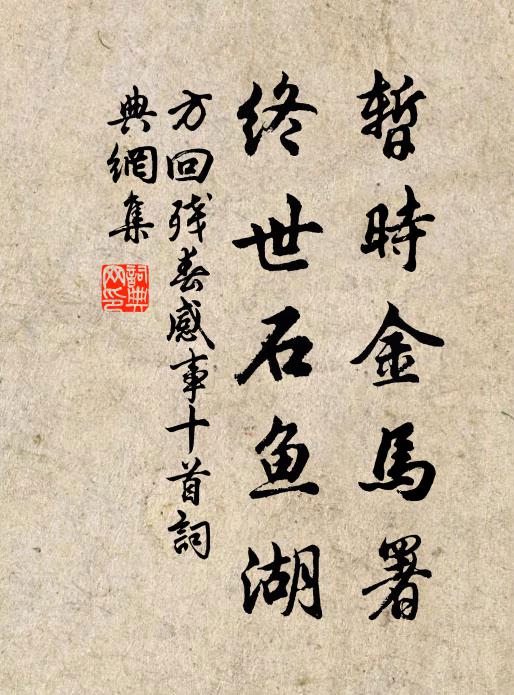 暫時金馬署
終世石鱼湖
方回残春感事十首詞
典網集
詞典
网印